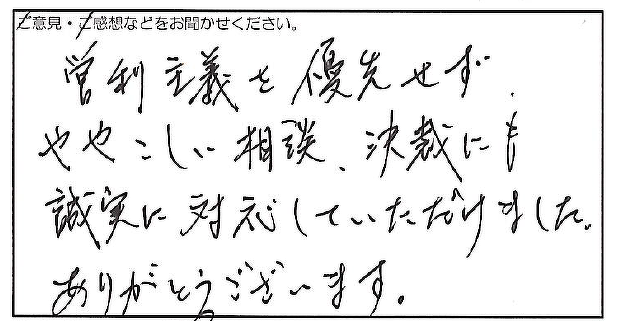 ご意見・ご感想などをお聞かせください。
営利主義を優先せず、
ややこしい相談、決裁にも
誠実に対応していただけました。
ありがとうございます。